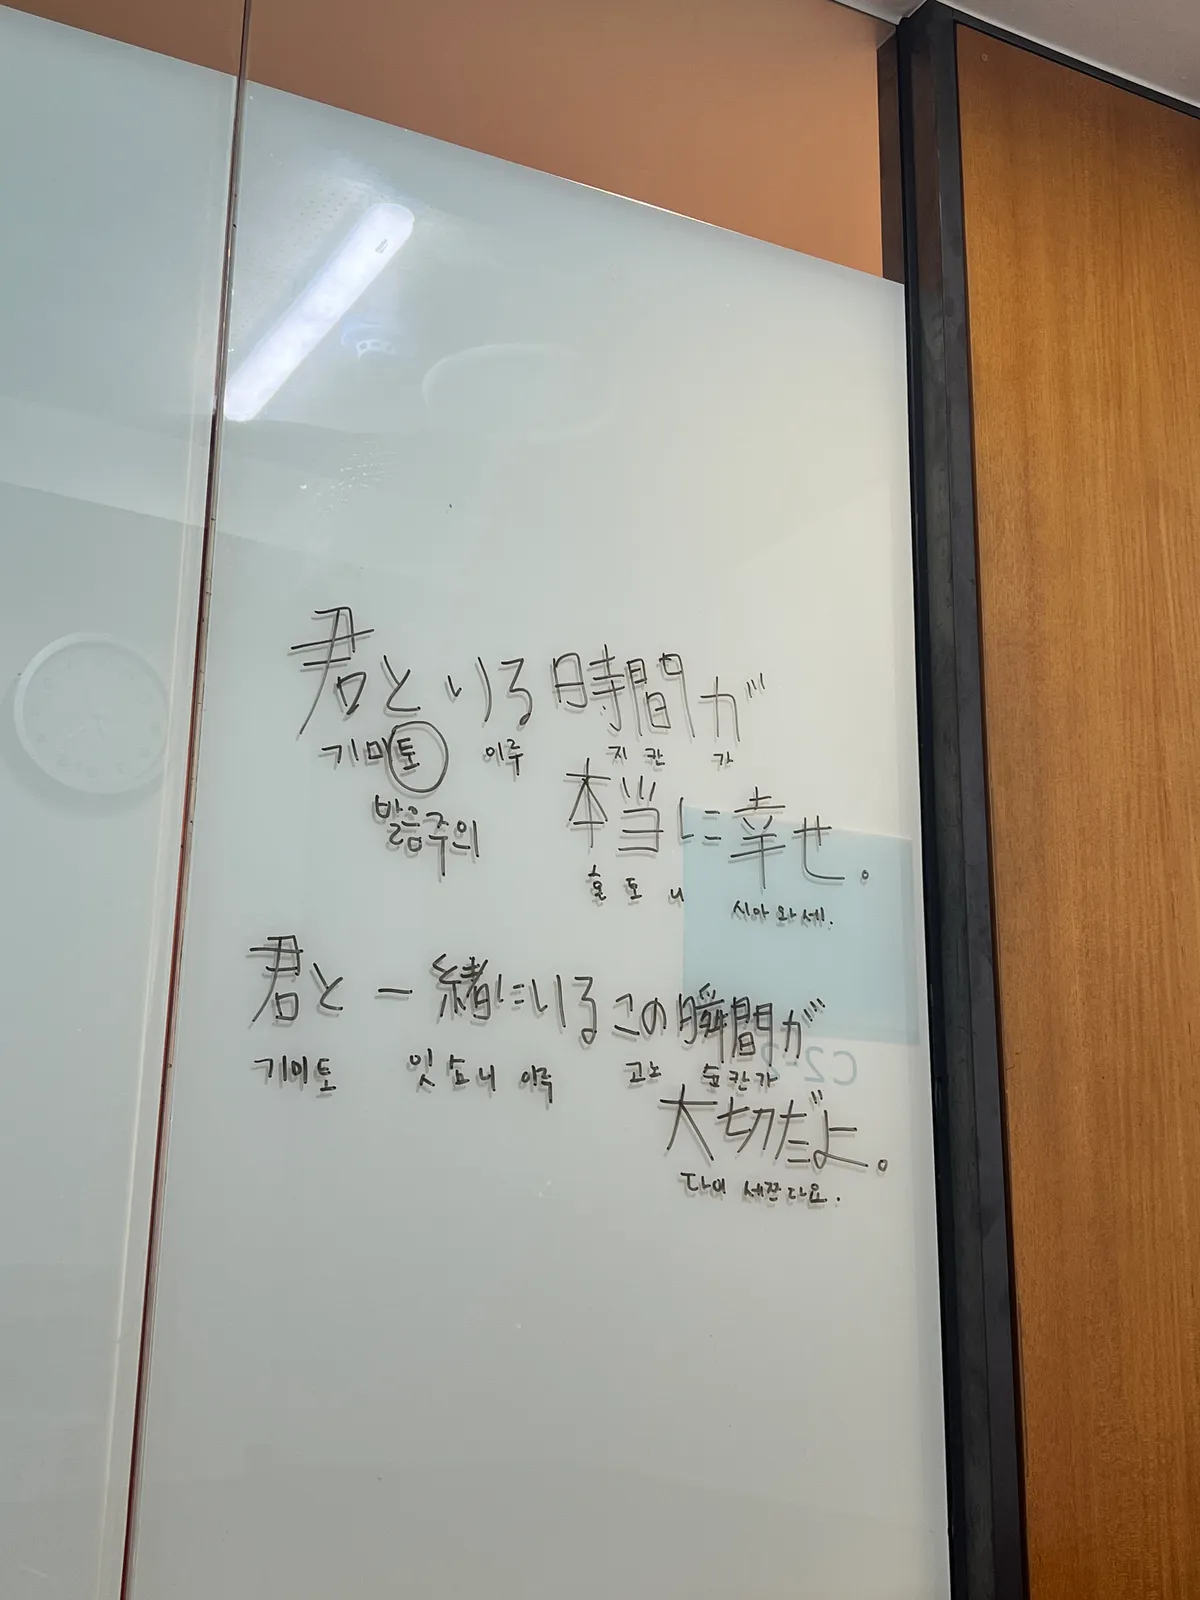 君といる時間が
기미토 이루 지칸 가
발음주의
本当に幸せ。
혼토니 시아와세.
君と一緒にいるこの瞬間が
기미토 잇쇼니 이루 고노 슌칸가
C2-2
大切だよ。
다이세쯔다요.